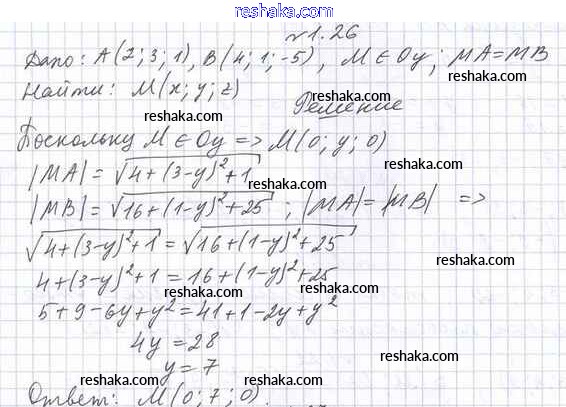 www.reshaka.com
reshaka.com
№1.26
Дано: A(2; 3; 1), B(4; 1; -5), M ∈ Oy; MA=MB
Найти: M(x; y; z)
Решение
Поскольку M ∈ Oy => M(0; y; 0)
|MA| = √(4+(3-y)²+1)
|MB| = √(16+(1-y)²+25) ; |MA| = |MB| =>
√(4+(3-y)²+1) = √(16+(1-y)²+25)
4+(3-y)²+1 = 16+(1-y)²+25
5+9-6y+y² = 41+1-2y+y²
4y = 28
y = 7
Ответ: M(0; 7; 0).
reshaka.com
reshaka.com
reshaka.com
reshaka.com
reshaka.com
reshaka.com
reshaka.com
reshaka.com
reshaka.com
reshaka.com
reshaka.com
reshaka.com
reshaka.com
reshaka.com